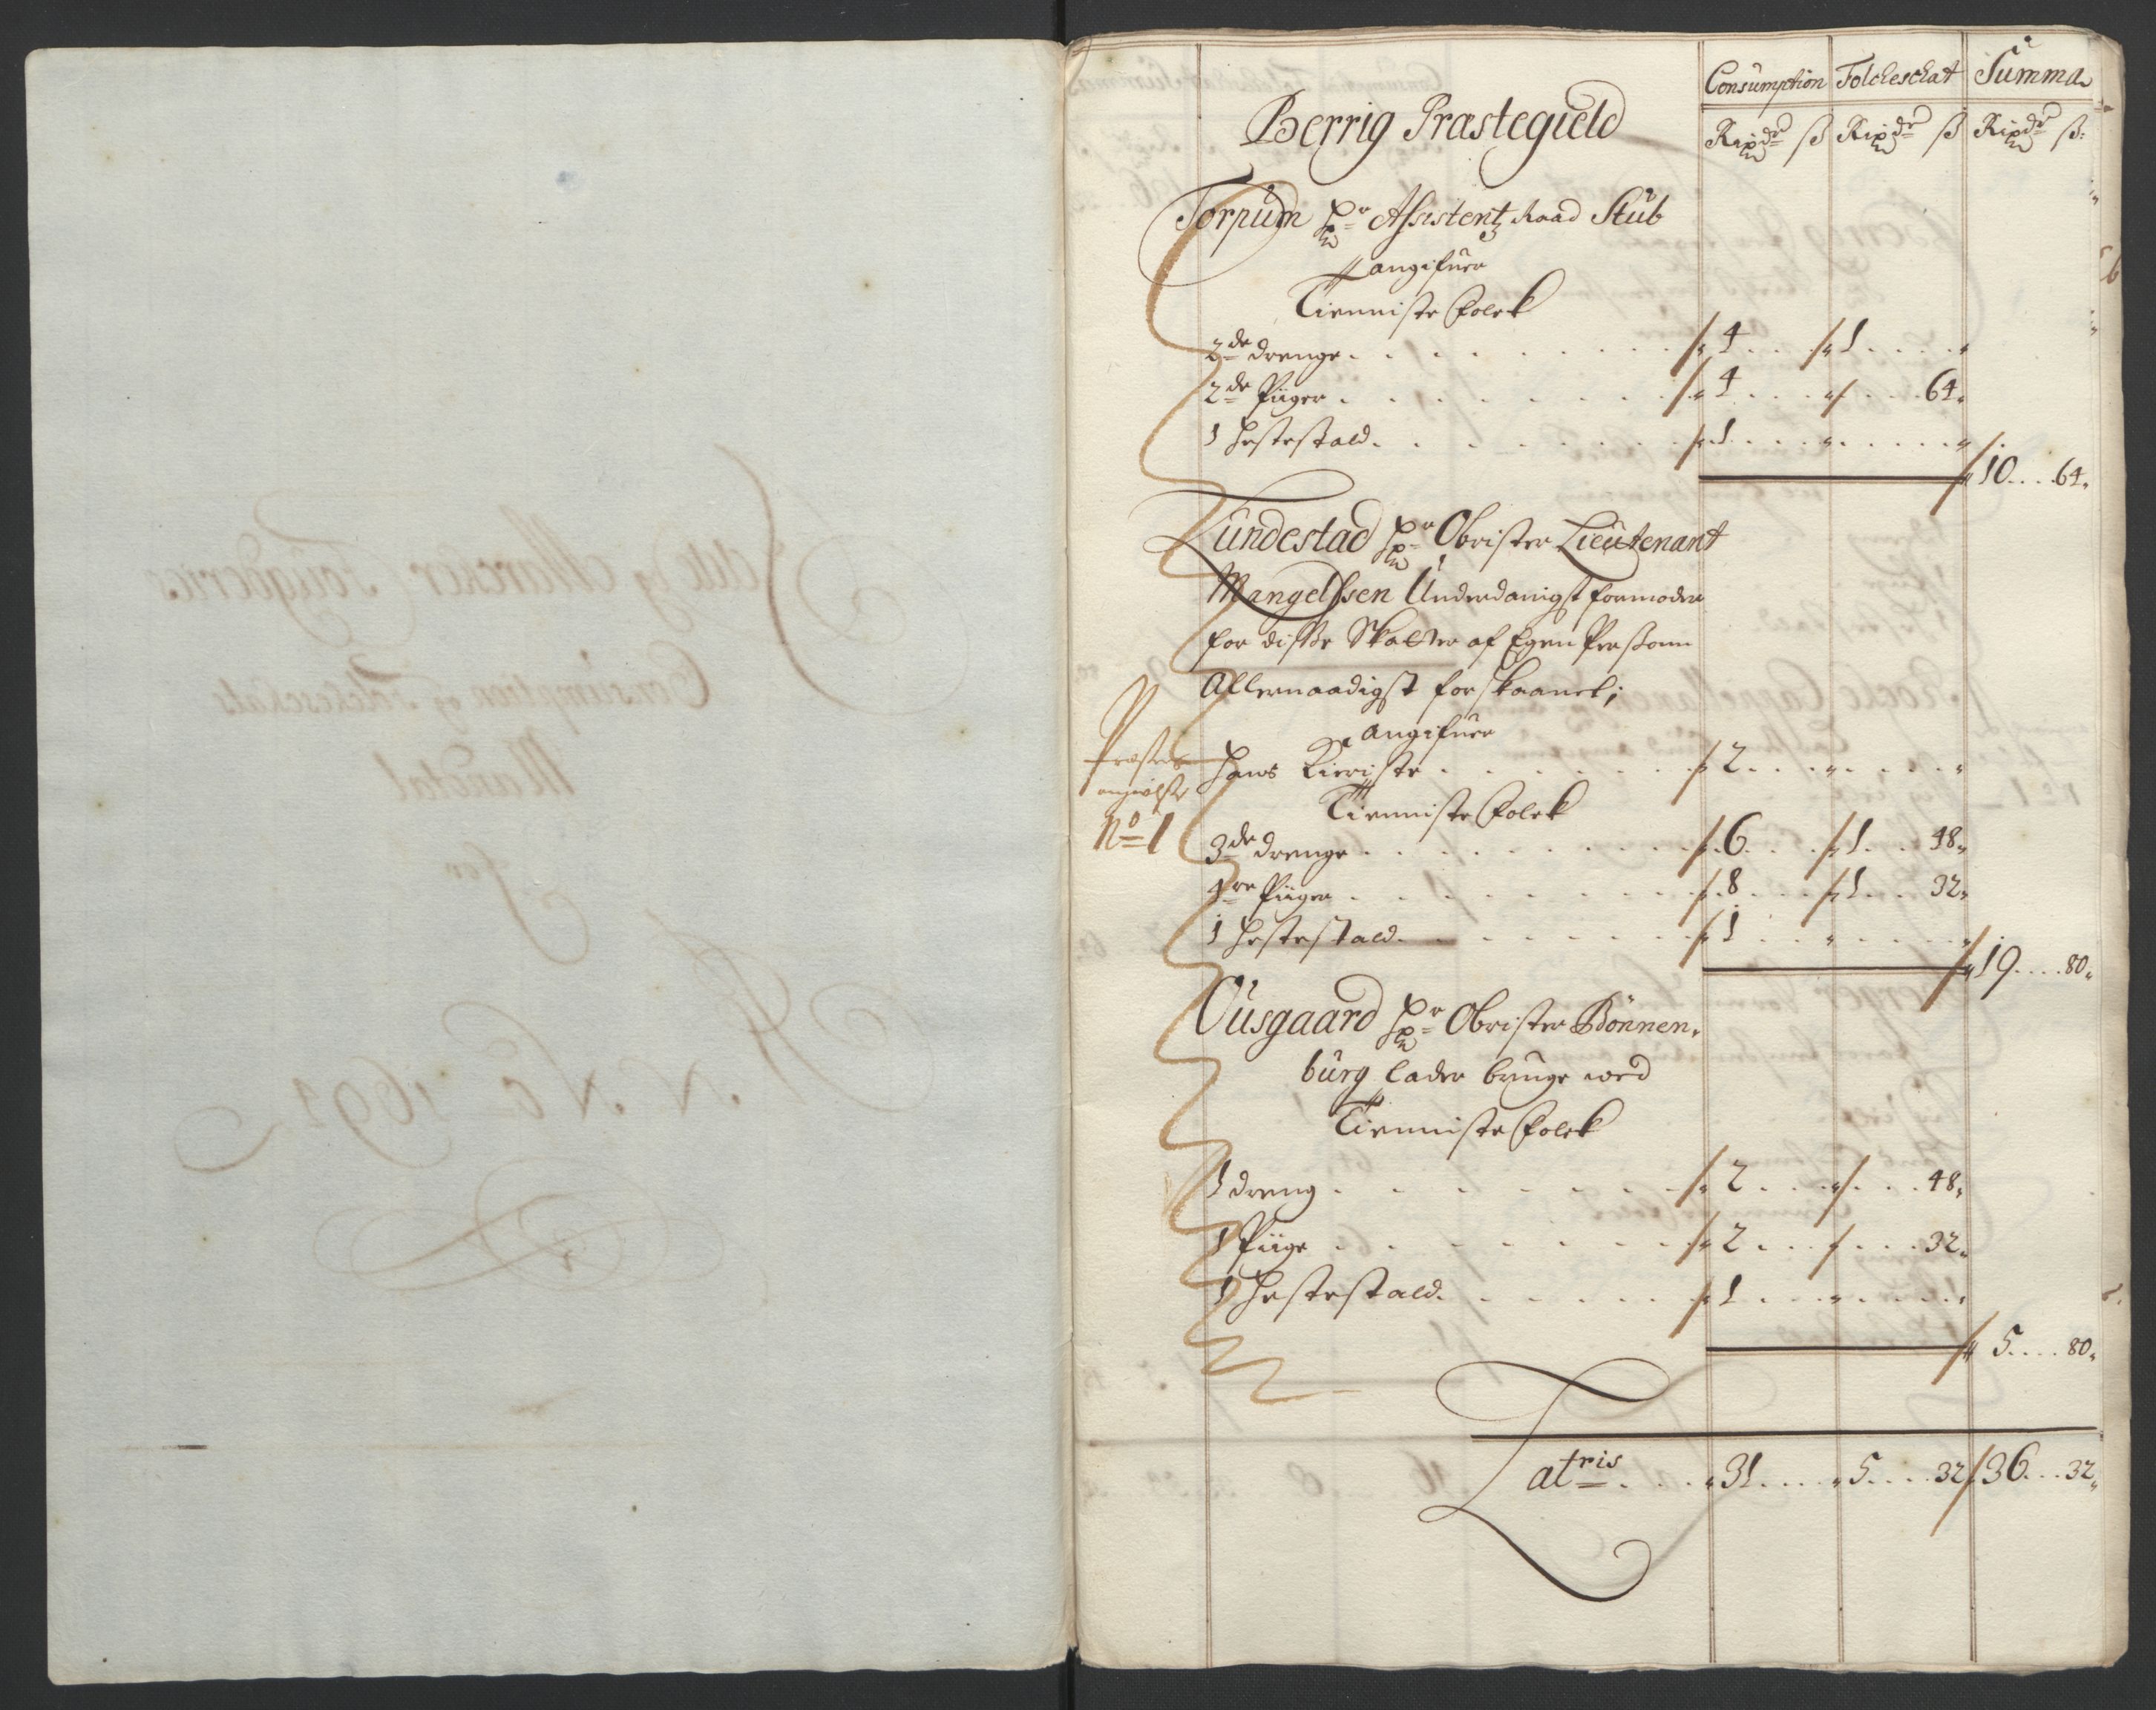 Consumption Folcheschat Summa
Berrig Præstegield
Rixdr ß Rixdr ß Rixdr ß:
Torpum Hr Assistentz Raad Stub
angifver
Tienniste Folck
2de drenge . . . 4 . . . 1 . . .
2de Piiger . . . 4 . . . 64
1 Hestestald . . . 1 . . .
10 . . . 64
Lundestad Hr Obrister Lieutenant
Mangelssen Underdanigst formoder
for disse Skatter af Egen Persson
Allernaadigst forskaanet;
angifver
Præstens
angivelse
No 1
Hans Tieniste . . . 2 . . .
Tienniste Folck
3de drenge . . . 6 . . . 1 . . . 48
4re Piiger . . . 8 . . . 1 . . . 32
1 Hestestald . . . 1 . . .
19 . . . 80
Ousgaard Hr Obrister Bönnen,
burg lader bruge wed
Tienniste Folck
1 dreng . . . 2 . . . 48
1 Piige . . . 2 . . . 32
1 Hestestald . . . 1 . . .
5 . . . 80
Latris . . . 31 . . . 5 . . . 32 36 . . . 32